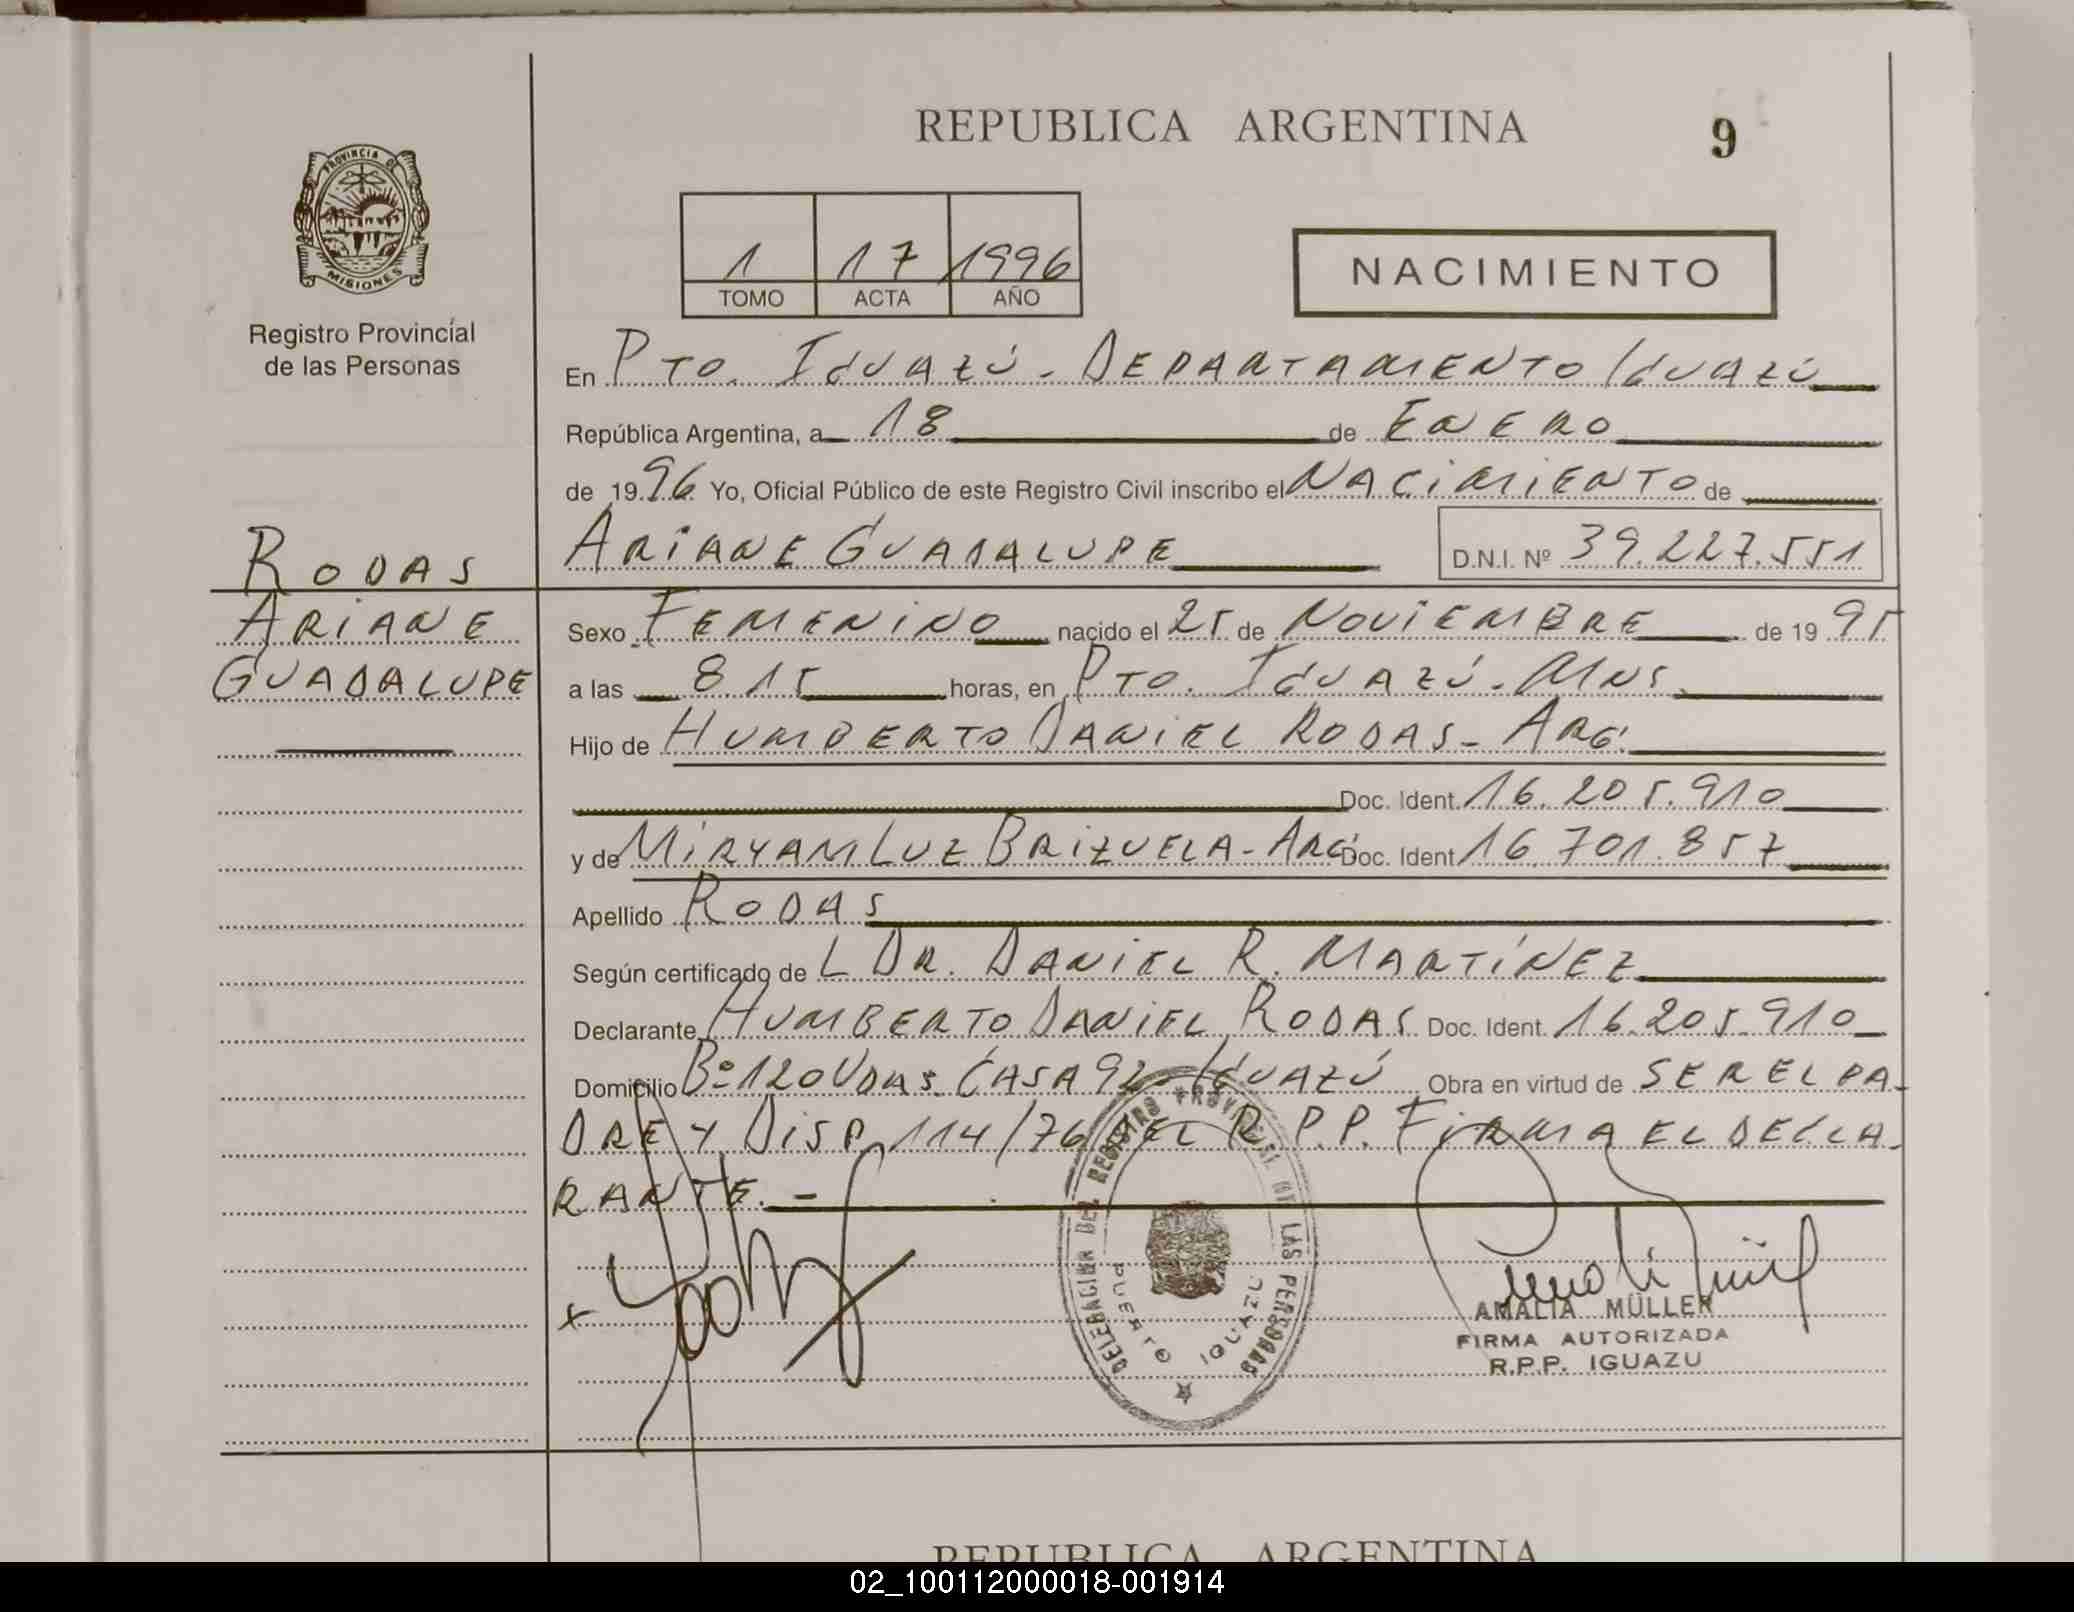 REPUBLICA ARGENTINA
9
PROVINCIA DE
MISIONES
Registro Provincial
de las Personas
1 17 1996
TOMO ACTA AÑO
NACIMIENTO
En PTO. IGUAZÚ - DEPARTAMENTO IGUAZÚ
República Argentina, a 18 de ENERO
de 1996 Yo, Oficial Público de este Registro Civil inscribo el NACIMIENTO de
ARIANE GUADALUPE D.N.I. Nº 39.227.551
RODAS
ARIANE
GUADALUPE
Sexo FEMENINO nacido el 25 de NOVIEMBRE de 1995
a las 8 15 horas, en PTO. IGUAZÚ - MNS.
Hijo de HUMBERTO DANIEL RODAS - ARG.
Doc. Ident. 16.205.910
y de MIRYAM LUZ BRIZUELA - ARG. Doc. Ident. 16.701.857
Apellido RODAS
Según certificado de L DR. DANIEL R. MARTÍNEZ
Declarante HUMBERTO DANIEL RODAS Doc. Ident. 16.205.910
Domicilio Bº 120 VDAS. CASA 92 - IGUAZÚ Obra en virtud de SER EL PA-
DRE Y DISP. 114/76 DEL R.P.P. FIRMA EL DECLA-
RANTE. -
DELEGACION DEL REGISTRO PROVINCIAL DE LAS PERSONAS
PUERTO IGUAZU
AMALIA MÜLLER
FIRMA AUTORIZADA
R.P.P. IGUAZU
REPUBLICA ARGENTINA
02_100112000018-001914